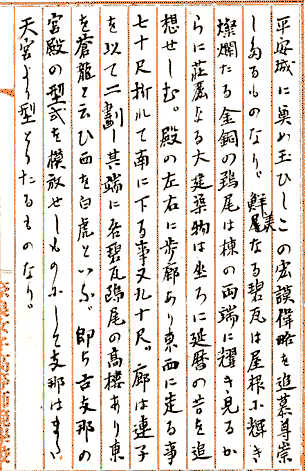 平安城に奠め玉ひしこの宏謨偉略を追慕尊崇
しタるものなり。鮮美なる碧瓦は屋根に輝き
燦爛たる金銅の鵄尾は棟の両端に耀き見るか
らに荘厳なる大建築物は坐ろに延暦の昔を追
想せしむ。殿の左右に歩廊あり東西に走る事
七十尺折れて南に下る事又九十尺。廊は連子
を以て二劃し其端に各碧瓦鵄尾の高楼あり東
を蒼龍と云ひ西を白虎といふ。即ち古支那の
宮殿の型式を模放せしものにして支那は
天宮より型とりたるものなり。